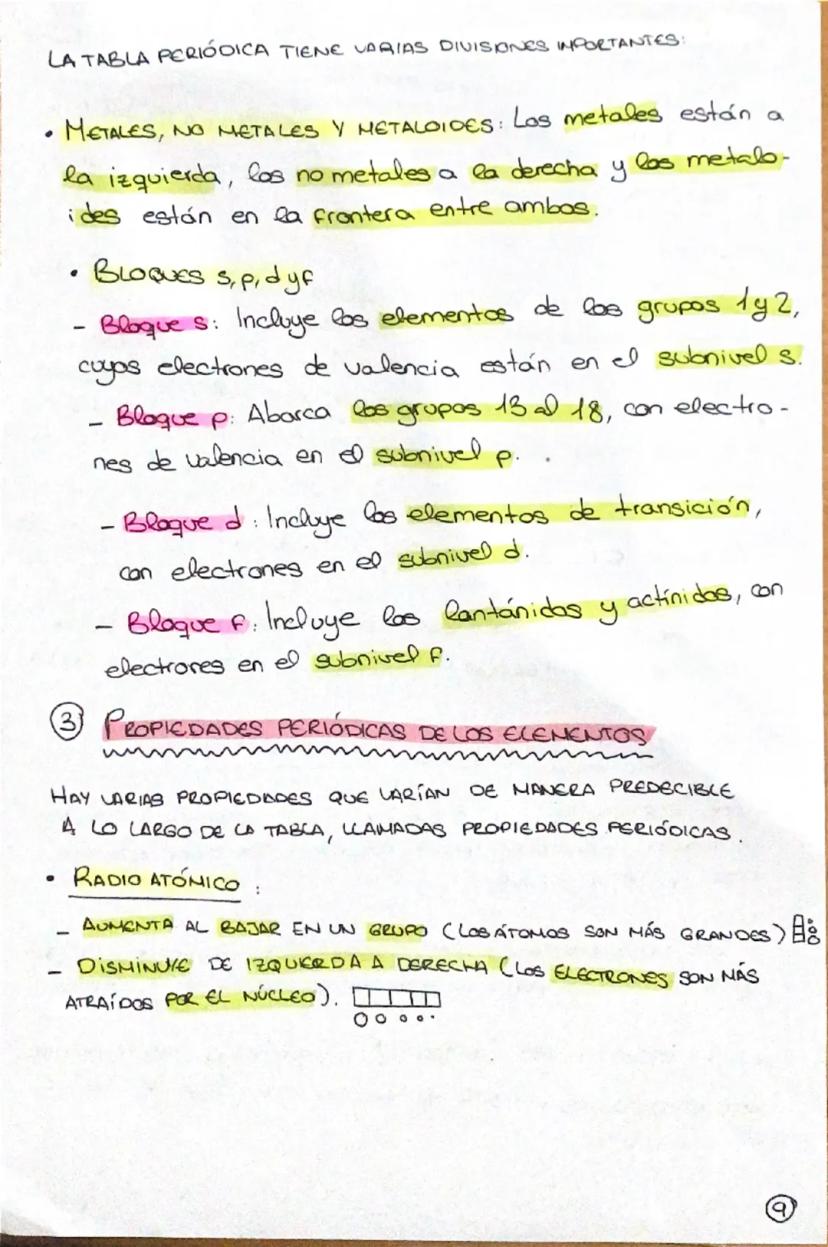 LA TABLA PERIÓDICA TIENE VARIAS DIVISIONES IMPORTANTES:
• METALES, NO METALES Y METALOIDES: Los metales están a
la izquierda, los no metales a la derecha y los metalo-
ides están en la frontera entre ambos.
• BLOQUES s, p, d y f
- Bloque s: Incluye los elementos de los grupos 1 y 2,
cuyos electrones de valencia están en el subnivel s.
- Bloque p: Abarca los grupos 13 al 18, con electro-
nes de valencia en el subnivel p.
- Bloque d: Incluye los elementos de transición,
con electrones en el subnivel d.
- Bloque f: Incluye los lantánidos y actínidos, con
electrones en el subnivel f.
③ PROPIEDADES PERIÓDICAS DE LOS ELEMENTOS
HAY VARIAS PROPIEDADES QUE VARÍAN DE MANERA PREDECIBLE
A LO LARGO DE LA TABLA, LLAMADAS PROPIEDADES PERIÓDICAS.
• RADIO ATÓMICO:
- AUMENTA AL BAJAR EN UN GRUPO (LOS ÁTOMOS SON MÁS GRANDES)
- DISMINUYE DE IZQUIERDA A DERECHA (LOS ELECTRONES SON MÁS
ATRAÍDOS POR EL NÚCLEO).
⑨